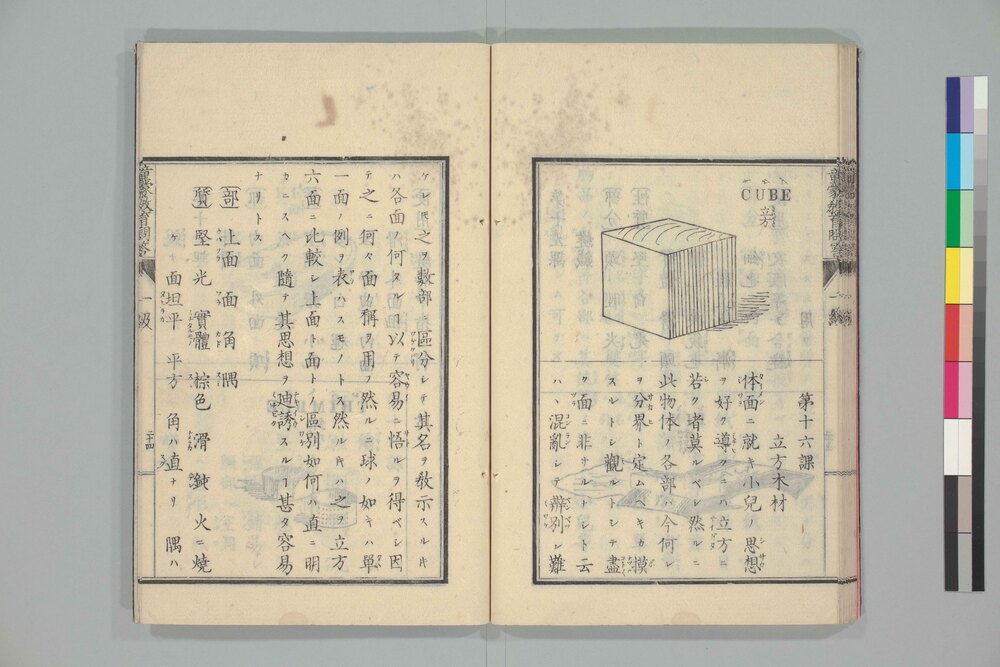 CUBE
立方
第十六課
立方木材
体面ニ就キ小兒ノ思想
ヲ好ク導クニハ立方ニ
若ク者莫ルベシ然ルニ
此物体ノ各部ハ今何レ
ヲ分界ト定ムベキカ摸
スルトシ觀ルトシテ盡
ク面ニ非サルハナシト云
ハヽ混亂シテ辨別シ難
ケレ𪜈之ヲ數部ニ區分シテ其名ヲ教示スル𪜈
ハ各面ノ何タルヿ以テ容易ニ悟ルヲ得ベシ因
テ之ニ何々面ノ稱ヲ用フ然ルニ球ノ如キハ單
一面ノ例ヲ表ハスモノトス然ル𪜈ハ之ヲ立方
六面ニ比較シ上面ト面トノ區別如何ハ直ニ明
カニスヘク隨テ其思想ヲ迪誘スルヿ甚タ容易
ナリトス
部 上面 面 角 隅
質 堅 光 實體 棕色 滑 鈍 火ニ燒
ケ 面坦平 平方 角ハ直ナリ 隅ハ
一級
二十四